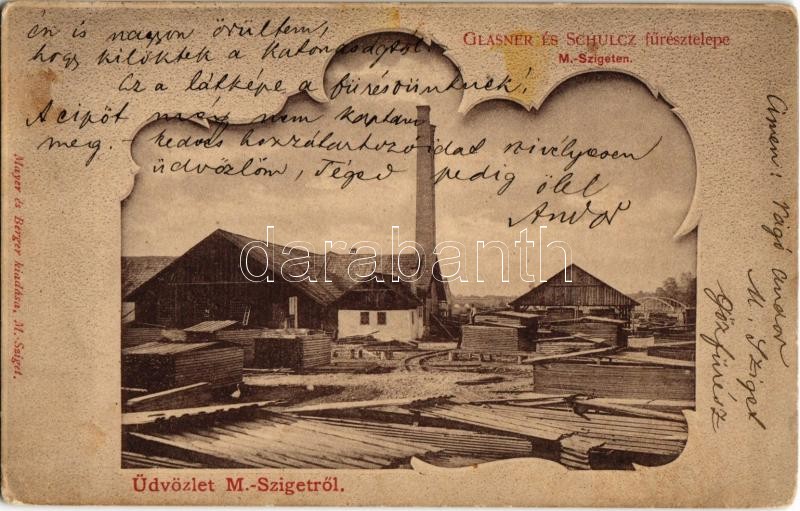 én is nagyon örültem,
hogy kilöktek a Katonaságtól.
Ez a látképe a fürészünknek!
A cipőt még nem kaptam
meg. - kedves hozzátartozoidat szivélyesen
üdvözlöm, Téged pedig ölel
Andor
GLASNER ÉS SCHULCZ fűrésztelepe
M.-Szigeten.
Cimem: Vágó Andor
M. Sziget
Gőzfürész
Mayer és Berger kiadása, M.-Sziget.
darabanth.com
Üdvözlet M.-Szigetről.